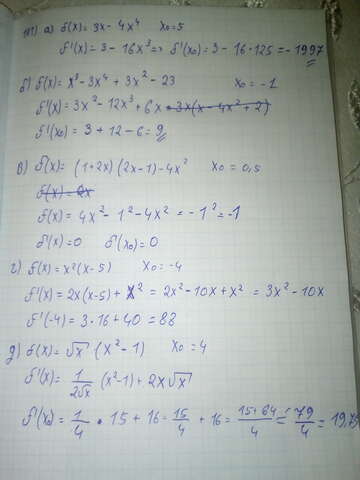 191) а) f(x) = 3x - 4x⁴ x₀=5
f'(x) = 3 - 16x³ => f'(x₀) = 3 - 16·125 = -1997
б) f(x) = x³ - 3x⁴ + 3x² - 23 x₀ = -1
f'(x) = 3x² - 12x³ + 6x = 3x(x - 4x² + 2)
f'(x₀) = 3 + 12 - 6 = 9
в) f(x) = (1+2x)(2x-1) - 4x² x₀ = 0,5
f(x) = 4x² - 1² - 4x² = -1² = -1
f'(x) = 0 f'(x₀) = 0
г) f(x) = x²(x-5) x₀ = -4
f'(x) = 2x(x-5) + x² = 2x² - 10x + x² = 3x² - 10x
f'(-4) = 3·16 + 40 = 88
д) f(x) = √x (x² - 1) x₀ = 4
f'(x) = 1/2√x (x² - 1) + 2x√x
f'(x₀) = 1/4 · 15 + 16 = 15/4 + 16 = 15+64/4 = 79/4 = 19,75